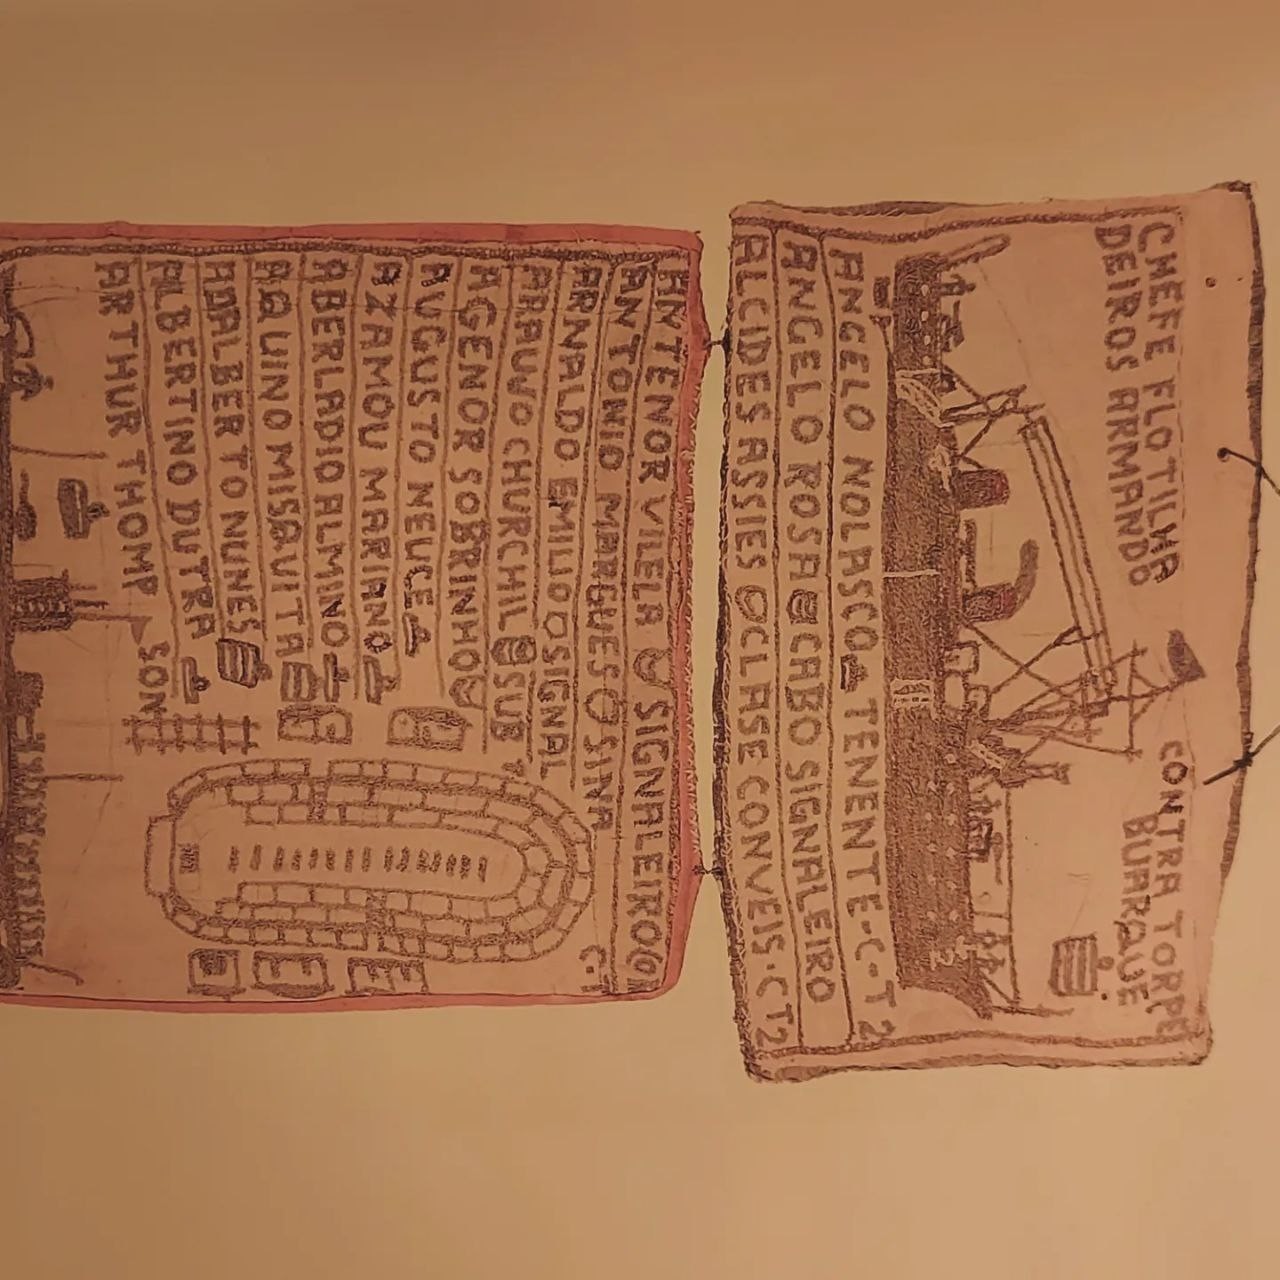 CHEFE FLOTILHA
DEIROS ARMANDO
CONTRA TORPE
BURRAQUE
ANGELO NOLASCO TENENTE-C-T 2
ANGELO ROSA CABO SIGNALEIRO
ALCIDES ASSIES CLASE CONVEIS. CT2
ANTENOR VILELA SIGNALEIRO
ANTONIO MARQUES SINA
ARNALDO EMILIO SIGNAL
C.T
ARAUJO CHURCHIL SUB
AGENOR SOBRINHO
AUGUSTO NEUCE
AZAMOU MARIANO
ABERLADIO ALMINO
AQUINO MISQUITA
ADALBERTO NUNES
ALBERTINO DUTRA
ARTHUR THOMP
SON